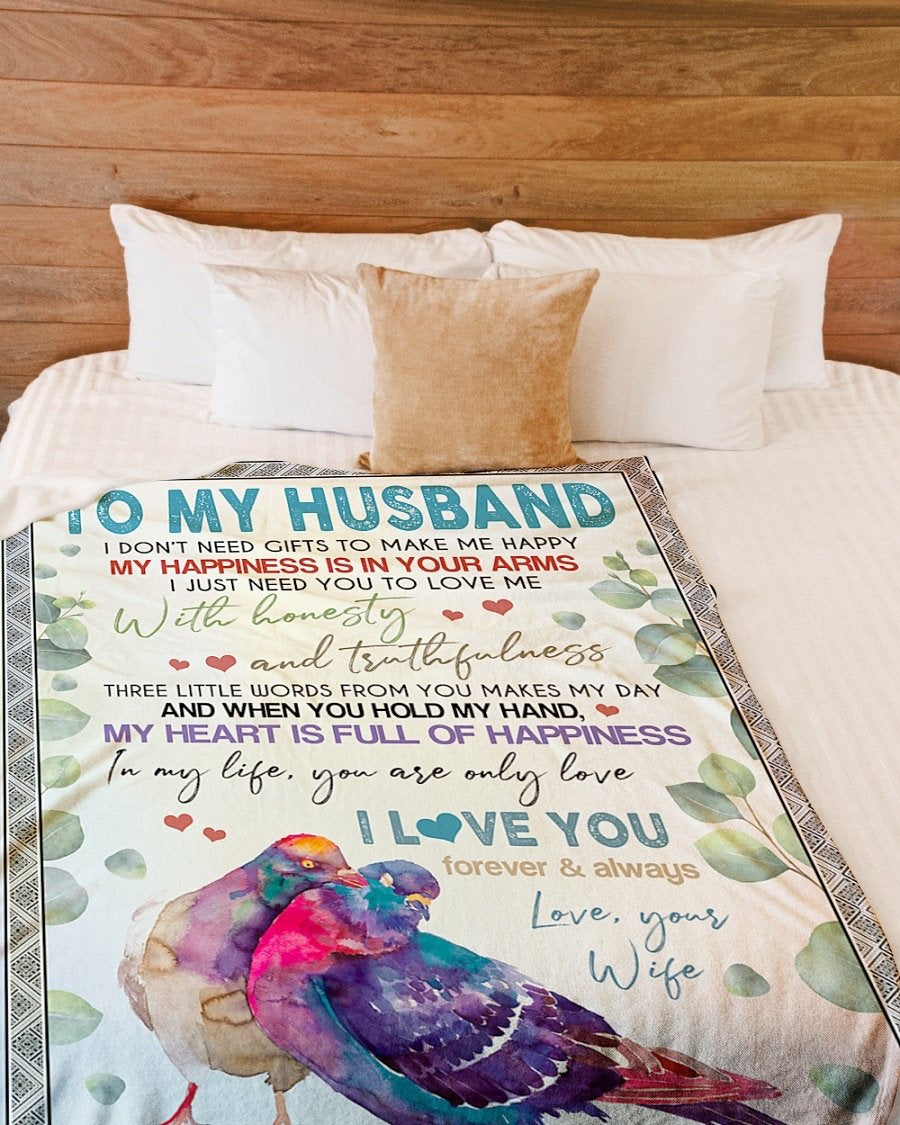 TO MY HUSBAND
I DON'T NEED GIFTS TO MAKE ME HAPPY
MY HAPPINESS IS IN YOUR ARMS
I JUST NEED YOU TO LOVE ME
With honesty
and truthfulness
THREE LITTLE WORDS FROM YOU MAKES MY DAY
AND WHEN YOU HOLD MY HAND,
MY HEART IS FULL OF HAPPINESS
In my life, you are only love
I LOVE YOU
forever & always
Love, your
Wife